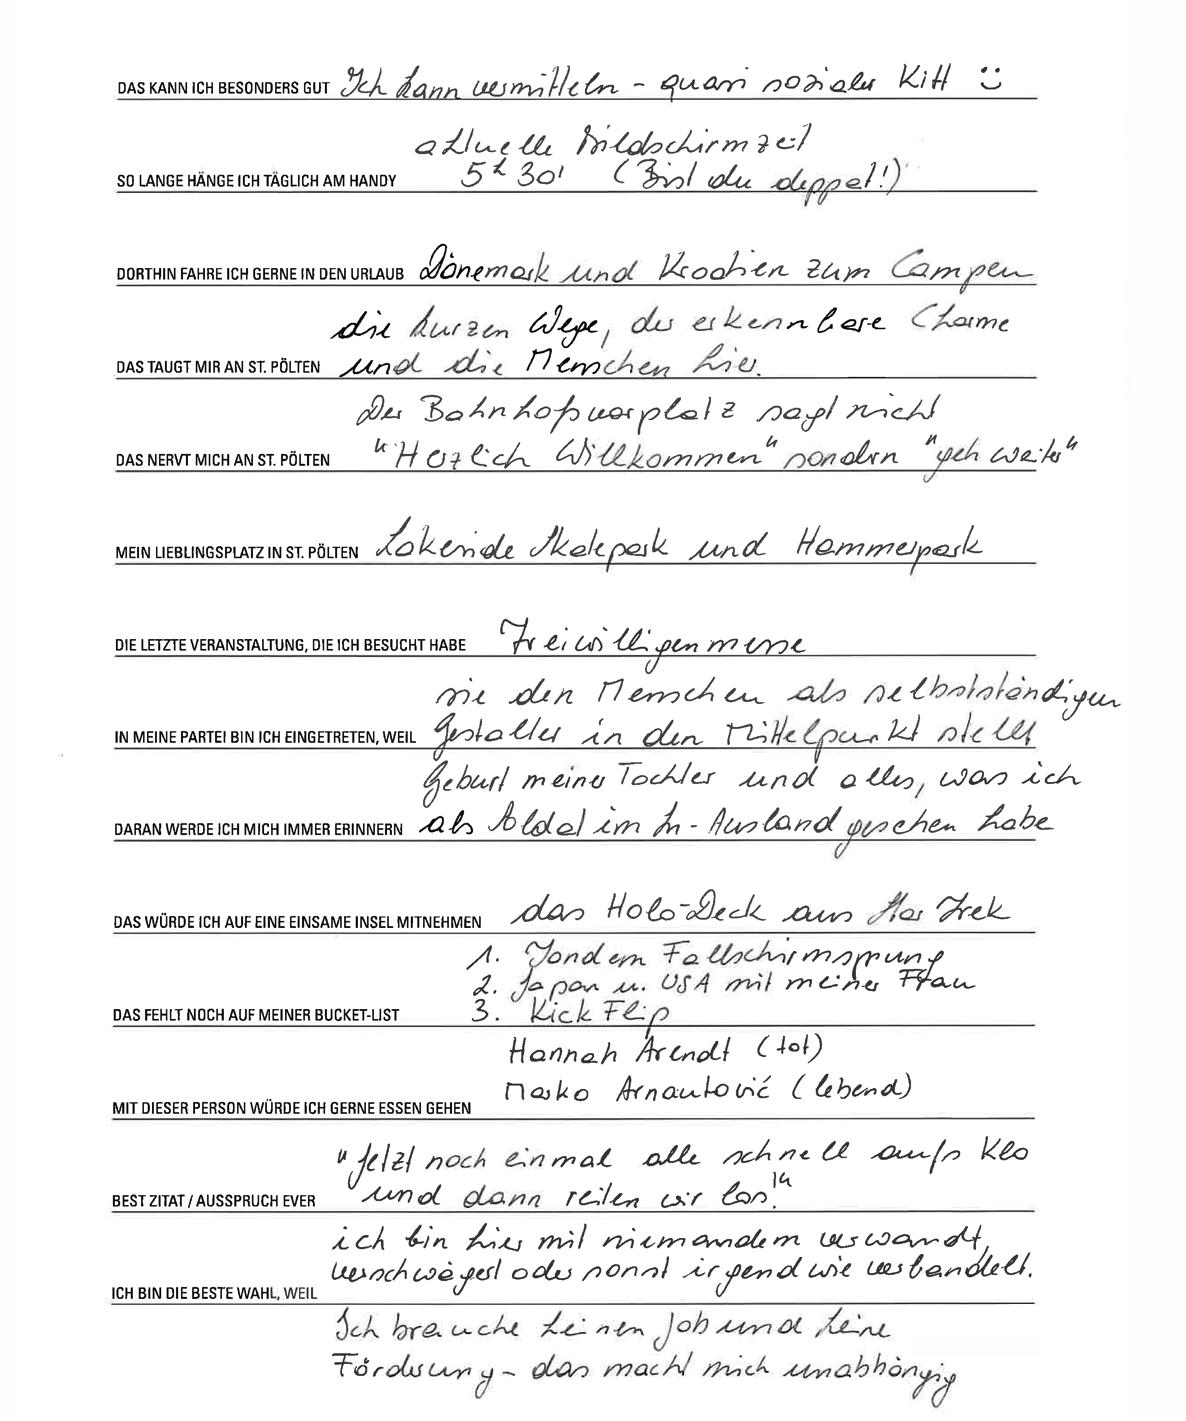 DAS KANN ICH BESONDERS GUT Ich kann vermitteln - quasi sozialer Kitt :)
aktuelle Bildschirmzeit
SO LANGE HÄNGE ICH TÄGLICH AM HANDY 5h 30' (Bist du deppat!)
DORTHIN FAHRE ICH GERNE IN DEN URLAUB Dänemark und Kroatien zum Campen
die kurzen Wege, der erkennbare Charme
DAS TAUGT MIR AN ST. PÖLTEN und die Menschen hier.
Der Bahnhofsvorplatz sagt nicht
DAS NERVT MICH AN ST. PÖLTEN "Herzlich Willkommen" sondern "geh weiter"
MEIN LIEBLINGSPLATZ IN ST. PÖLTEN Lakeside Skatepark und Hammerpark
DIE LETZTE VERANSTALTUNG, DIE ICH BESUCHT HABE Freiwilligenmesse
sie den Menschen als selbstständigen
IN MEINE PARTEI BIN ICH EINGETRETEN, WEIL Gestalter in den Mittelpunkt stellt
Geburt meiner Tochter und alles, was ich
DARAN WERDE ICH MICH IMMER ERINNERN als Soldat im In-Ausland gesehen habe
DAS WÜRDE ICH AUF EINE EINSAME INSEL MITNEHMEN das Holo-Deck aus Star Trek
1. Tandem Fallschirmsprung
2. Japan u. USA mit meiner Frau
DAS FEHLT NOCH AUF MEINER BUCKET-LIST 3. Kick Flip
Hannah Arendt (tot)
Marko Arnautović (lebend)
MIT DIESER PERSON WÜRDE ICH GERNE ESSEN GEHEN
"Jetzt noch einmal alle schnell aufs Klo
BEST ZITAT / AUSSPRUCH EVER und dann reiten wir los!"
ich bin hier mit niemandem verwandt,
verschwägert oder sonst irgendwie verbandelt.
ICH BIN DIE BESTE WAHL, WEIL
Ich brauche keinen Job und keine
Förderung - das macht mich unabhängig